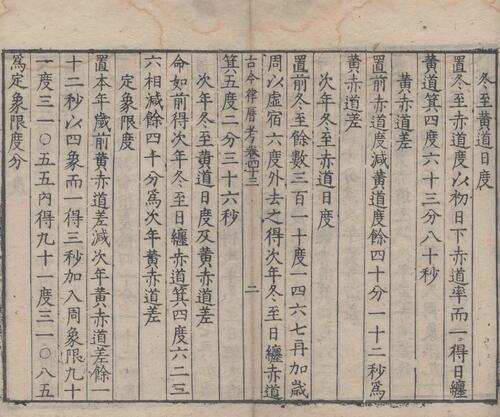 冬至黄道日度
置冬至赤道度以初日下赤道率而一得日纏
黄道箕四度六十三分八十秒
黄赤道差
置前赤道度減黄道度餘四十分一十二秒爲
黄赤道差
次年冬至赤道日度
置前冬至餘數三百一十度一四六七再加歲
周以虛宿六度外去之得次年冬至日纏赤道
古今律曆考卷四十三 二
箕五度二分三十六秒
次年冬至黄道日度及黄赤道差
命如前得次年冬至日纏赤道箕四度六二三
六相減餘四十分爲次年黄赤道差
定象限度
置本年歲前黄赤道差減次年黄赤道差餘一
十二秒以四象而一得三秒加入周象限九十
一度三一〇五五內得九十一度三一〇八五
爲定象限度分